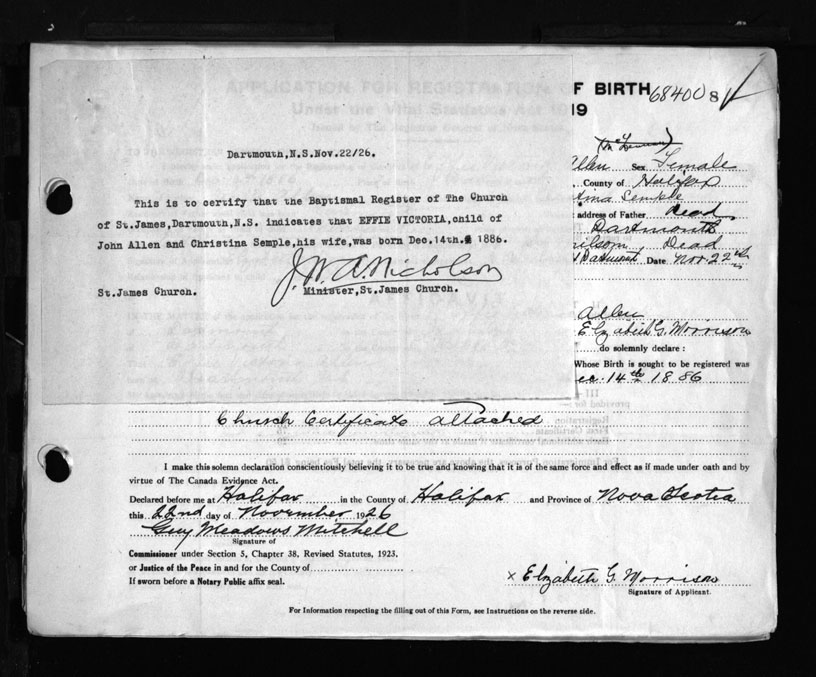 F BIRTH
68400 81
19
Dartmouth,N.S.Nov.22/26.
This is to certify that the Baptismal Register of The Church
of St.James,Dartmouth,N.S. indicates that EFFIE VICTORIA,child of
John Allen and Christina Semple,his wife,was born Dec.14th. 1886.
J. W. A. Nicholson
St.James Church. Minister,St.James Church.
Allen Sex Female
County of Halifax
Semple
address of Father Dead
Dartmouth
Dead
Date Nov. 22nd
Allen
Elizabeth G. Morrison
do solemnly declare :
Whose Birth is sought to be registered was
ec. 14th 1886
Church Certificate attached
I make this solemn declaration conscientiously believing it to be true and knowing that it is of the same force and effect as if made under oath and by
virtue of The Canada Evidence Act.
Declared before me at Halifax in the County of Halifax and Province of Nova Scotia
this 22nd day of November 1926
Guy Meadows Mitchell
Signature of
Commissioner under Section 5, Chapter 38, Revised Statutes, 1923.
or Justice of the Peace in and for the County of
If sworn before a Notary Public affix seal.
x Elizabeth G. Morrison
Signature of Applicant.
For Information respecting the filling out of this Form, see Instructions on the reverse side.